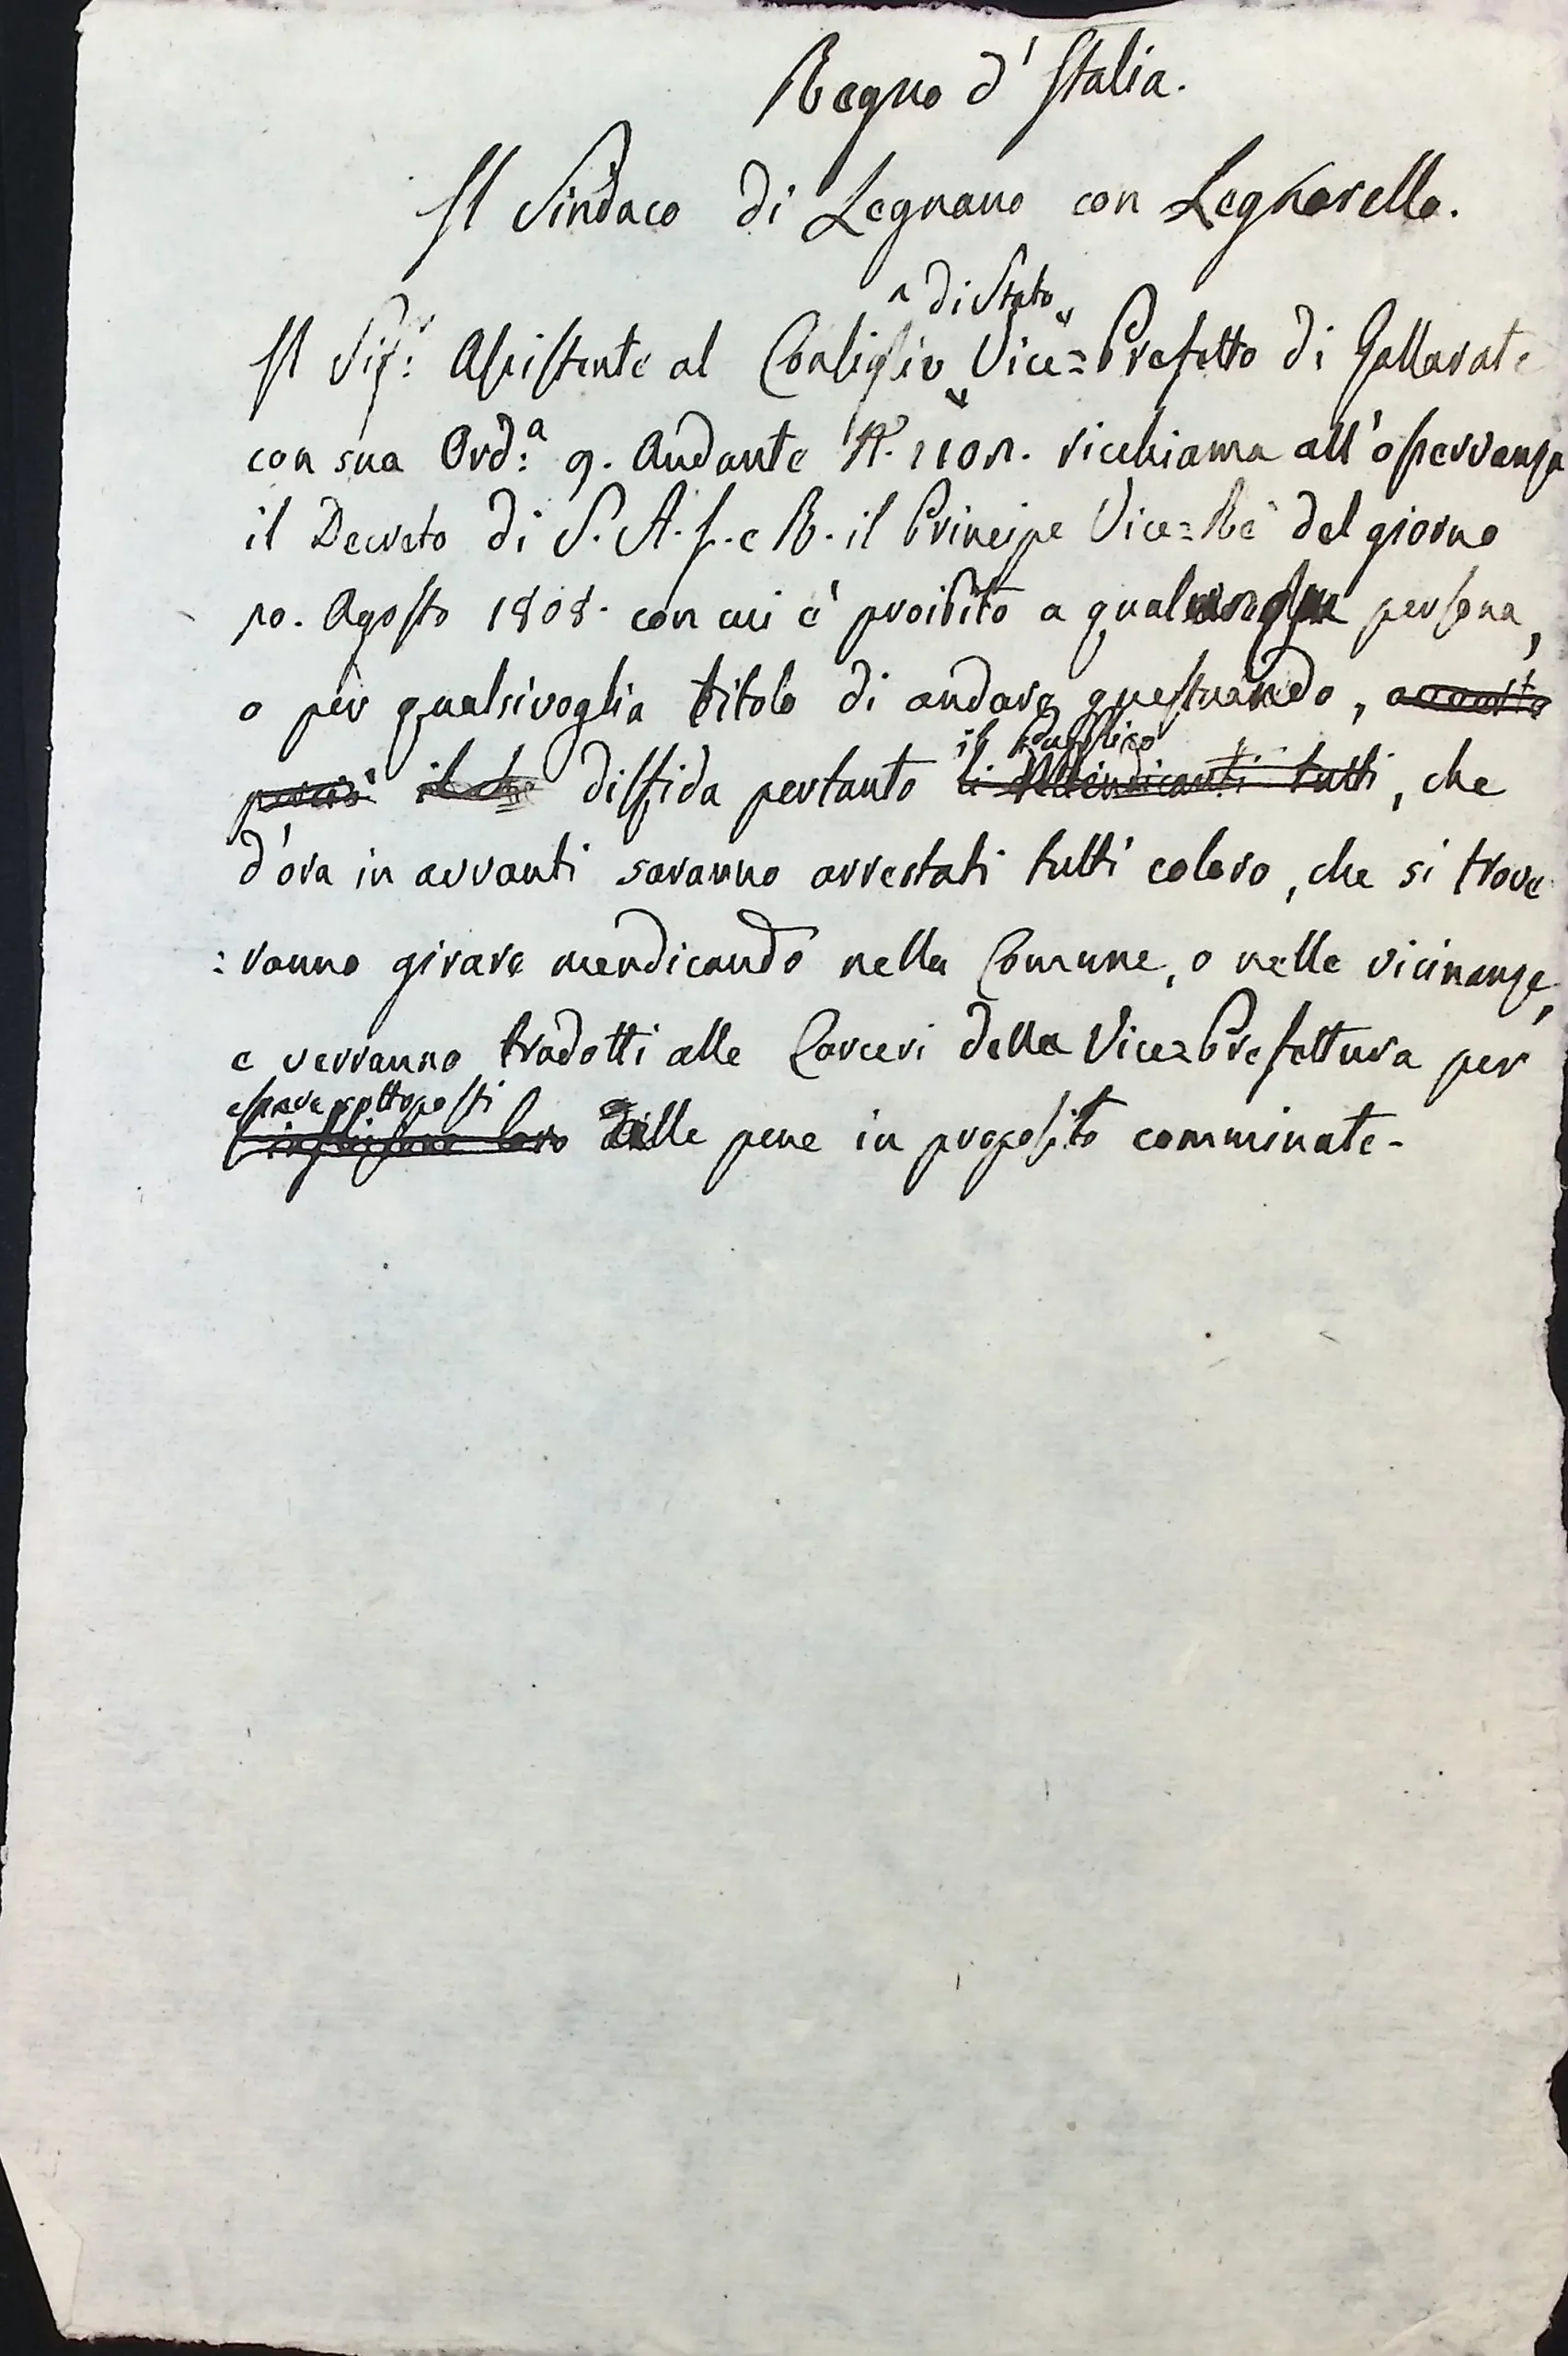 Regno d'Italia.
Il Sindaco di Legnano con Legnarello.
di Stato
Il Sig.r Assistente al Consiglio Vice=Prefetto di Gallarate
con sua Ord.a 9. Andante N. richiama all'osservanza
il Decreto di S. A. I. e R. il Principe Vice=Re del giorno
10. Agosto 1808. con cui è proibito a persona,
o per qualsivoglia titolo di andare questuando,
il Pubblico
perciò il che diffida pertanto li Mendicanti tutti, che
d'ora in avvanti saranno arrestati tutti coloro, che si trove
:ranno girare mendicando nella Comune, o nelle vicinanze,
e verranno tradotti alle Carceri della Vice=Prefettura per
essere sottoposti
loro alle pene in proposito comminate-